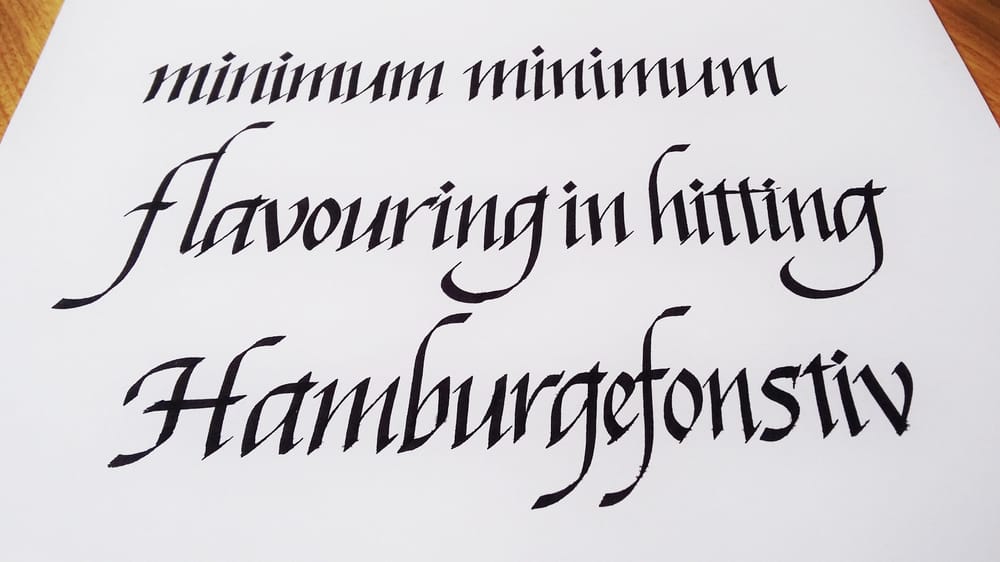 minimum minimum
flavouring in hitting
Hamburgefonstiv